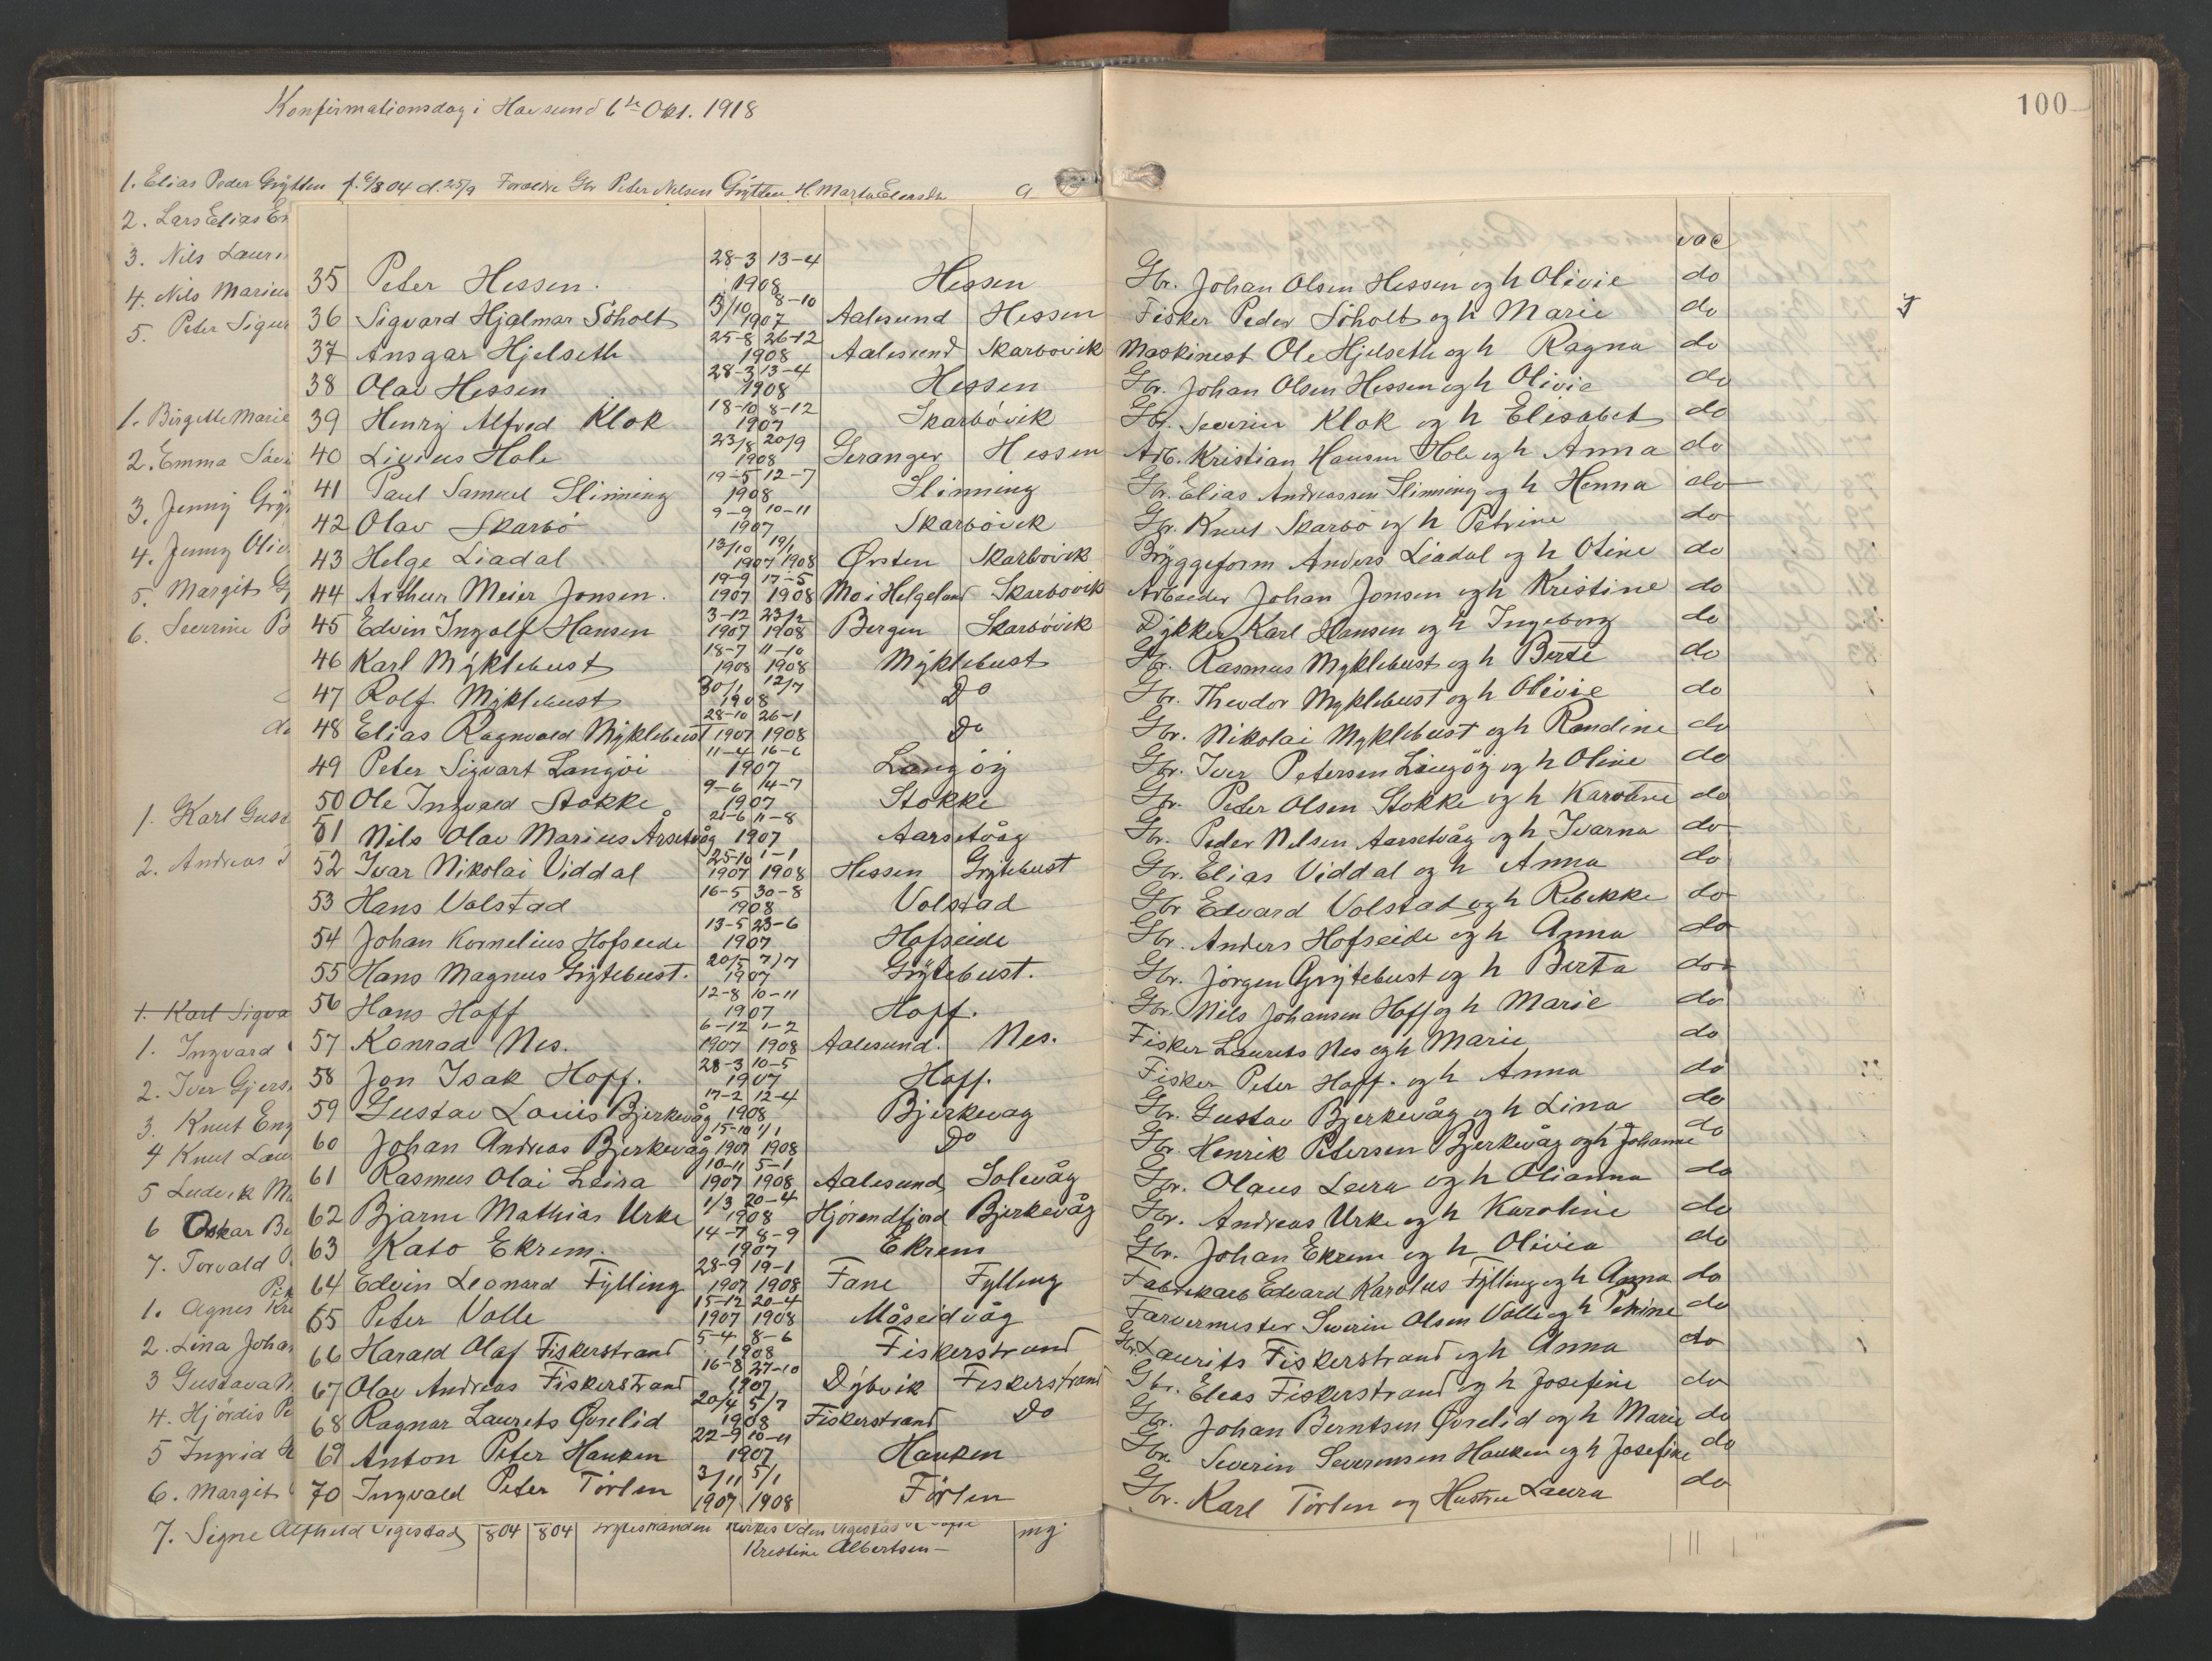 Konfirmationsdag i Havsund 6te Okt. 1918
100
1. Elias Peder Grytten f. 9/8 04 d. 25/9 Forældre Gbr Peter Nelsen Grytten H. Marta
2. Lars Elias
3. Nils
4. Nils Marius
5. Peter
1. Birgitte Marie
2. Emma
3. Jenny
4. Jenny
5. Margit
6. Severine
1. Karl
2. Andreas
1. Karl Sigva
1. Ingvard
2. Iver Gjers
3. Knut Eng
4 Knut
5 Ludvik
6 Oskar
7. Torvald
1. Agnes
2. Lina Johan
3 Gustava
4. Hjördis
5 Ingrid
6. Margit
vac
35 Peter Hessen. 28-3 13-4 1908 Hessen Gbr. Johan Olsen Hessen og h Olivie do
36 Sigvard Hjalmar Söholt 13/10 8-10 1907 Aalesund Hessen Fisker Peder Söholt og h Marie do
37 Ansgar Hjelseth 25-8 26-12 1908 Aalesund Skarbövik Maskinest Ole Hjelseth og h Ragna do
38 Olav Hessen 28-3 13-4 1908 Hessen Gbr. Johan Olsen Hessen og h Olivie do
39 Henry Alfred Klok 18-10 8-12 1907 Skarbövik Gbr. Severin Klok og h Elisabet do
40 Livius Hole 23/8 20/9 1908 Geranger Hessen Arb. Kristian Hansen Hole og h Anna do
41 Paul Samuel Slinning 19-5 12-7 1908 Slinning Gbr. Elias Andreassen Slinning og h Henna do
42 Olav Skarbö 9-9 10-11 1907 Skarbövik Gbr. Knut Skarbö og h Petrine do
43 Helge Liadal 13/10 19/1 1907 1908 Ørsten Skarbövik Bryggeform Anders Liadal og h Oline do
44 Arthur Meier Jonsen. 19-9 17-5 1907 1908 Mo i Helgeland Skarbovik Arbeider Johan Jonsen og h Kristine do
45 Edvin Ingolf Hansen 3-12 23/2 1907 1908 Bergen Skarbövik Dykker Karl Hansen og h Ingeborg do
46 Karl Myklebust 18-7 11-10 1908 1908 Myklebust Gbr. Rasmus Myklebust og h Berte do
47 Rolf Myklebust 30/1 12/7 1908 Do Gbr. Theodor Myklebust og h Olivie do
48 Elias Ragnvald Myklebust 28-10 26-1 1907 1908 Do Gbr. Nikolai Myklebust og h Randine do
49 Peter Sigvart Langöi 11-4 16-6 1907 Langöy Gbr. Iver Petersen Langöy og h Oline do
50 Ole Ingvald Stokke 9-6 14-7 1907 Stokke Gbr. Peder Olsen Stokke og h Karoline do
51 Nils Olav Marius Årsetvåg 21-6 11-8 1907 Aarsetvåg Gbr. Peder Nelsen Aarsetvåg og h Ivarna do
52 Ivar Nikolai Viddal 25-10 1-1 1907 1908 Hessen Grytebust Gbr. Elias Viddal og h Anna do
53 Hans Volstad 16-5 30-8 1908 Volstad Gbr Edvard Volstad og h Rebekke do
54 Johan Kornelius Hofseide 13-5 23-6 1907 Hofseide Gbr. Anders Hofseide og h Anna do
55 Hans Magnus Grytebust. 20/5 7/7 1907 Grytebust. Gbr. Jörgen Grytebust og h Berta do
56 Hans Hoff 12-8 10-11 1907 Hoff. Gbr. Nils Johansen Hoff og h Marie do
57 Konrad Nes. 6-12 1-2 1907 1908 Aalesund. Nes. Fisker Laurits Nes og h Marie do
58 Jon Isak Hoff. 28-3 10-5 1907 Hoff. Fisker Peter Hoff. og h Anna do
59 Gustav Louis Bjerkevåg 17-2 12-4 1908 Bjerkevag Gbr. Gustav Bjerkevåg og h Lina do
60 Johan Andreas Bjerkevåg 15-10 1/1 1907 1908 Do Gbr. Henrik Petersen Bjerkevåg og h Johanne do
61 Rasmus Olai Leira 10-11 5-1 1907 1908 Aalesund Solevåg Gbr. Olaus Leira og h Olianna do
62 Bjarne Mathias Urke 1/3 20-4 1908 Hjörendfjord Bjerkevåg Gbr. Andreas Urke og h Karoline do
63 Kato Ekrem. 14-7 8-9 1907 Ekrem Gbr. Johan Ekrem og h Olivia do
64 Edvin Leonard Fylling 28-9 19-1 1907 1908 Fane Fylling Fabrikarb Edvard Karolus Fylling og h Anna do
65 Peter Valle 15-12 20-4 1907 1908 Måseidvåg Farvermester Severin Olsen Valle og h Petrine do
66 Harald Olaf Fiskerstrand 5-4 8-6 1908 Fiskerstrand Gbr. Laurits Fiskerstrand og h Anna do
67 Olav Andreas Fiskerstrand 16-8 27-10 1907 Dybvik Fiskerstrand Gbr. Elias Fiskerstrand og h Josefine do
68 Ragnar Laurits Øvrelid 20/4 5/7 1908 Fiskerstrand Do Gbr. Johan Berntsen Øvrelid og h Marie do
69 Anton Peter Hauken 22-9 10-11 1907 Hauken Gbr. Severin Severensen Hauken og h Josefine do
70 Ingvald Peter Törlen 3/11 5/1 1907 1908 Törlen Gbr. Karl Törlen og Hustru Laura do
7. Signe Alfhild Vigestad 804 804 mg
Kristine Albertsen